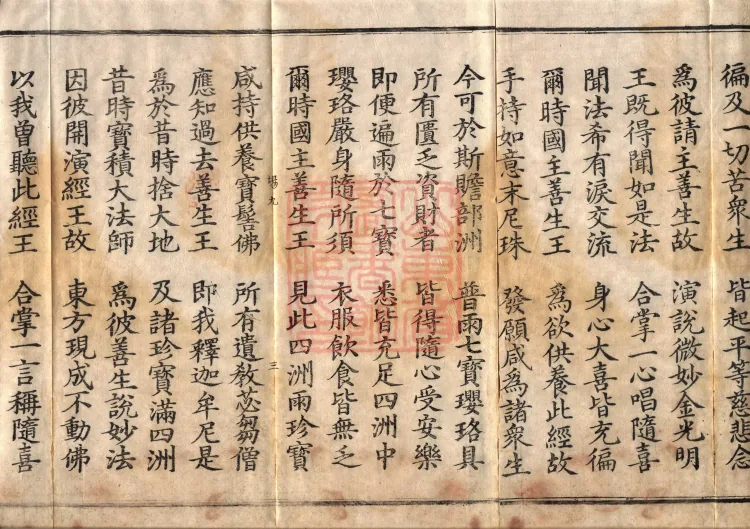 徧及一切苦衆生　皆起平等慈悲念
為彼請主善生故　演說微妙金光明
王既得聞如是法　合掌一心唱隨喜
聞法希有淚交流　身心大喜皆充徧
爾時國主善生王　為欲供養此經故
手持如意末尼珠　發願咸為諸衆生
今可於斯贍部洲　普雨七寶瓔珞具
所有匱乏資財者　皆得隨心受安樂
即便遍雨於七寶　悉皆充足四洲中
瓔珞嚴身隨所須　衣服飲食皆無乏
爾時國主善生王　見此四洲雨珍寶
場九　三
咸持供養寶髻佛　所有遺教苾芻僧
應知過去善生王　即我釋迦牟尼是
為於昔時捨大地　及諸珍寶滿四洲
昔時寶積大法師　為彼善生說妙法
因彼開演經王故　東方現成不動佛
以我曽聽此經王　合掌一言稱隨喜